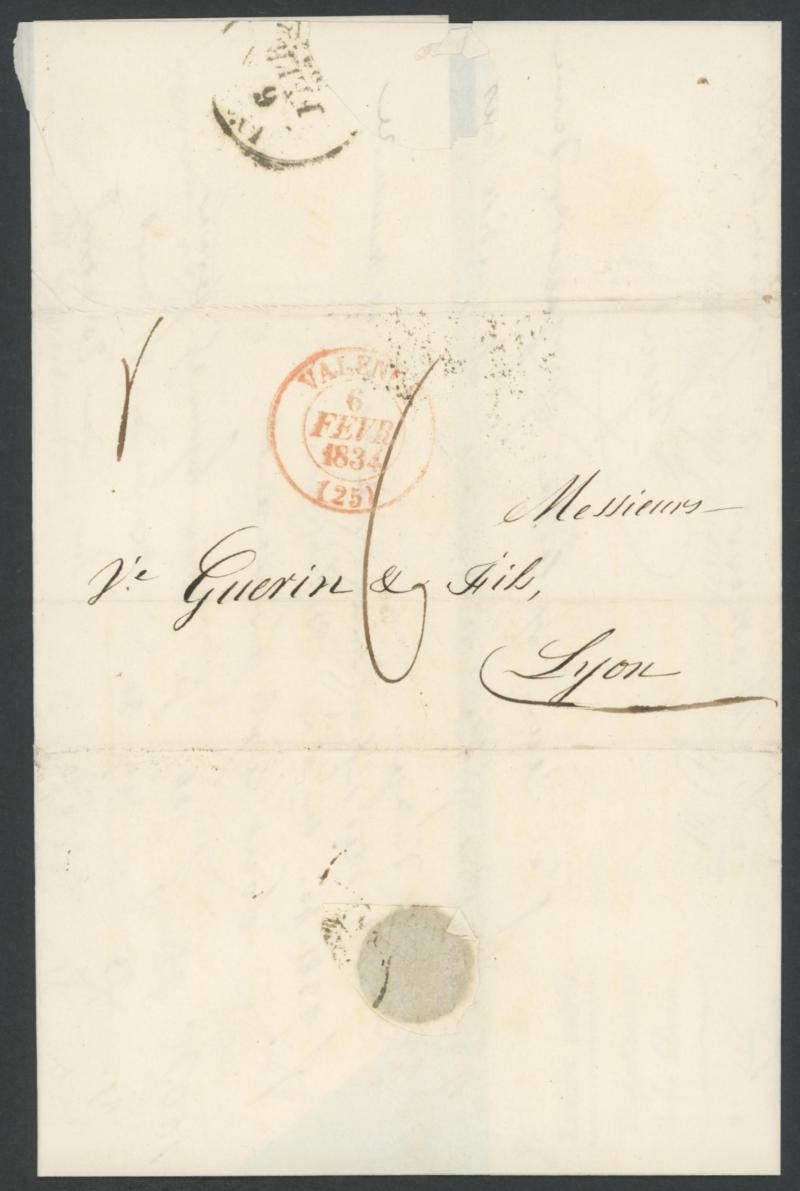 6
FEVR
VALEN
6
FEVR
1834
(25)
Messieurs
Ve Guerin & Fils,
Lyon